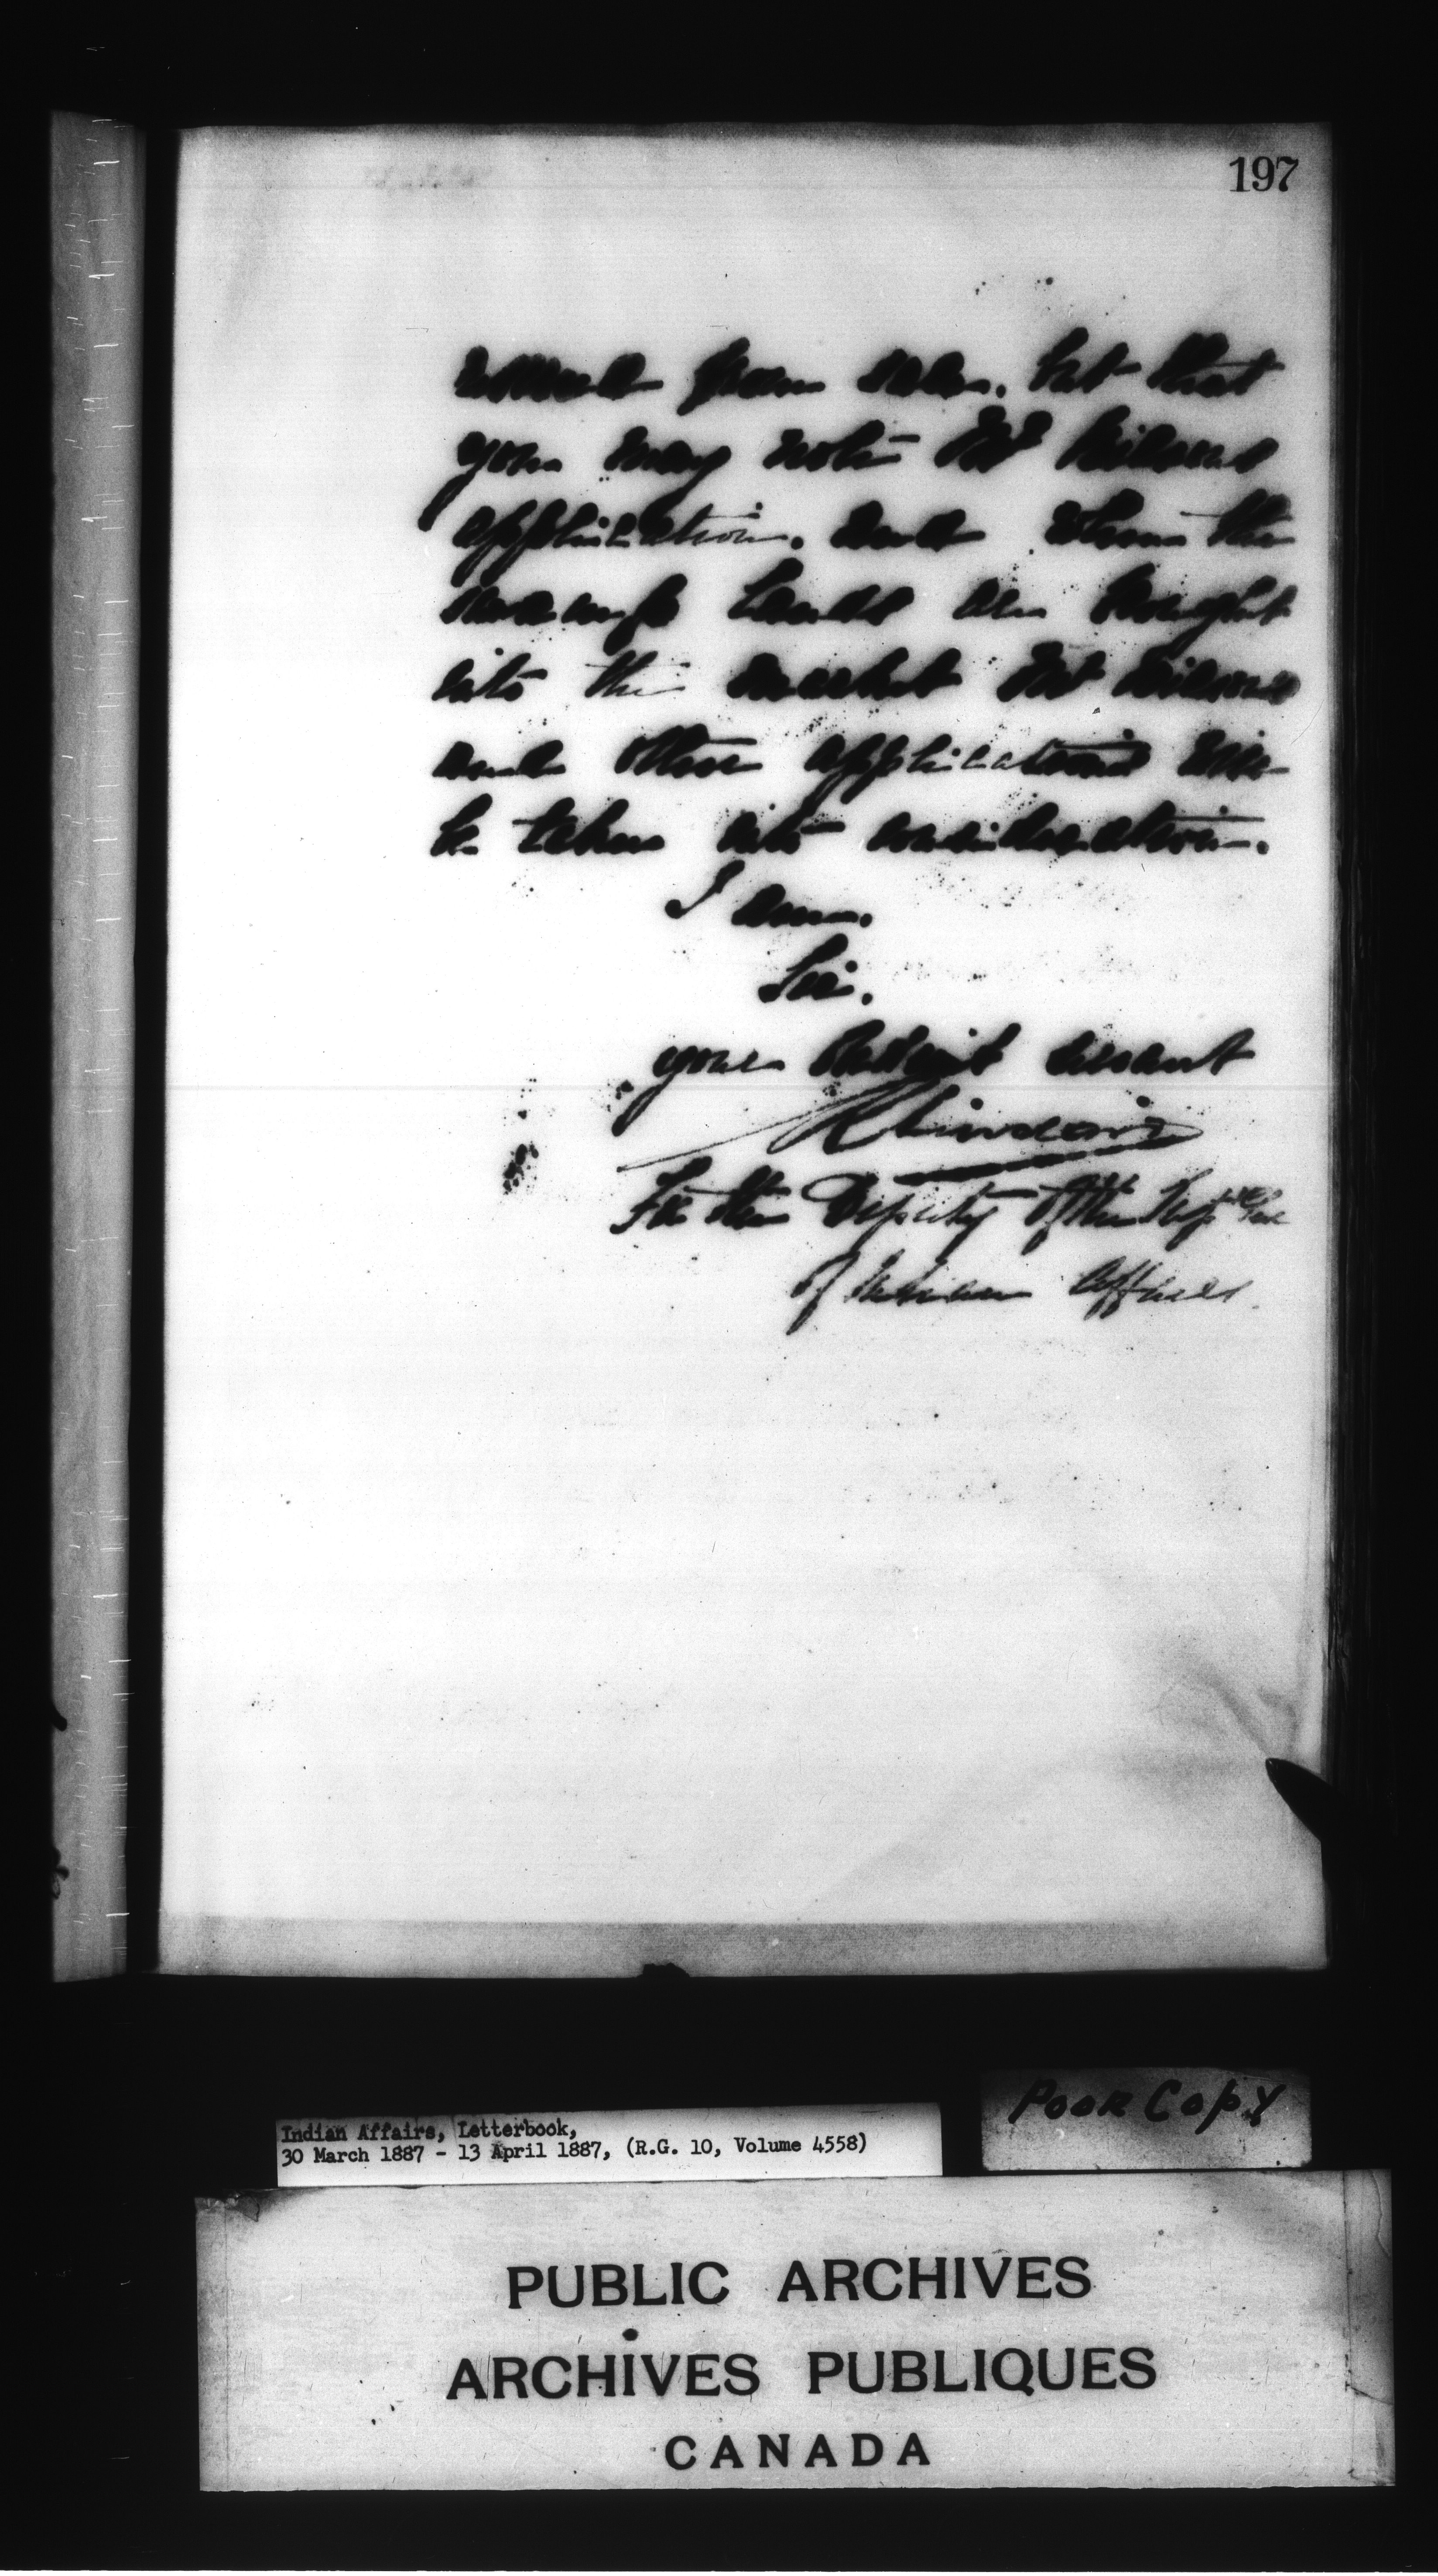 197
from sale, but that
you may note Mr
application. and when the
swamp lands are brought
into the market Mr
and other applications will
be taken into consideration.
I am.
Sir.
your obedient servant
R Sinclair
For the Deputy of the Supt Gen
of Indian Affairs.
Poor Copy
Indian Affairs, Letterbook,
30 March 1887 - 13 April 1887, (R.G. 10, Volume 4558)
PUBLIC ARCHIVES
ARCHIVES PUBLIQUES
CANADA